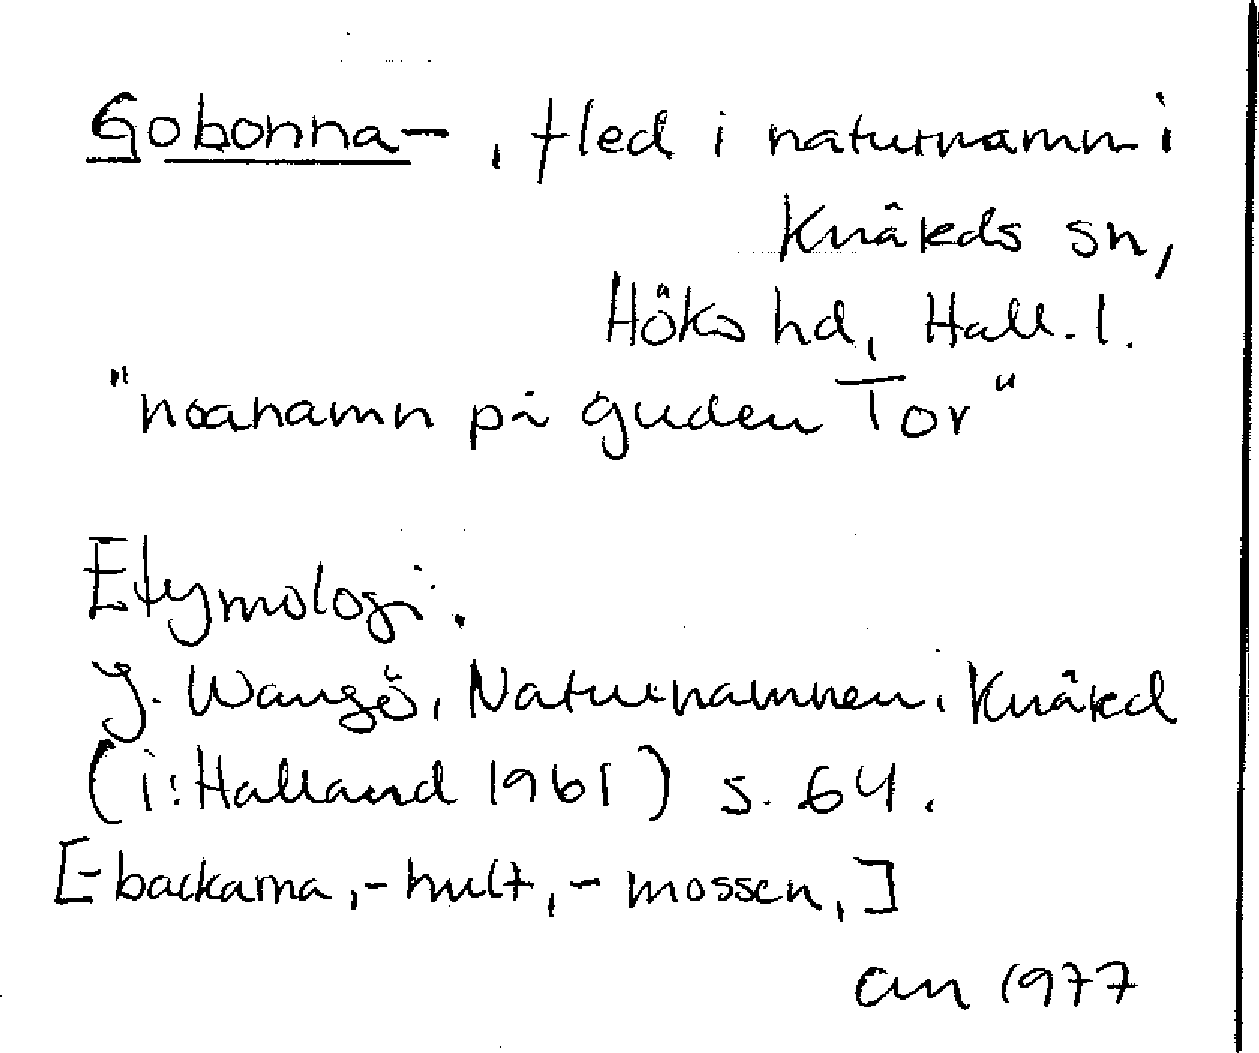 Gobonna-, fled i naturnamn i
Knäreds sn,
Höks hd, Hall. l.
"noanamn på guden Tor"
Etymologi:
J. Wangö, Naturnamnen i Knäred
(i: Halland 1961) s. 64.
[-backarna, -hult, -mossen,]
an 1977